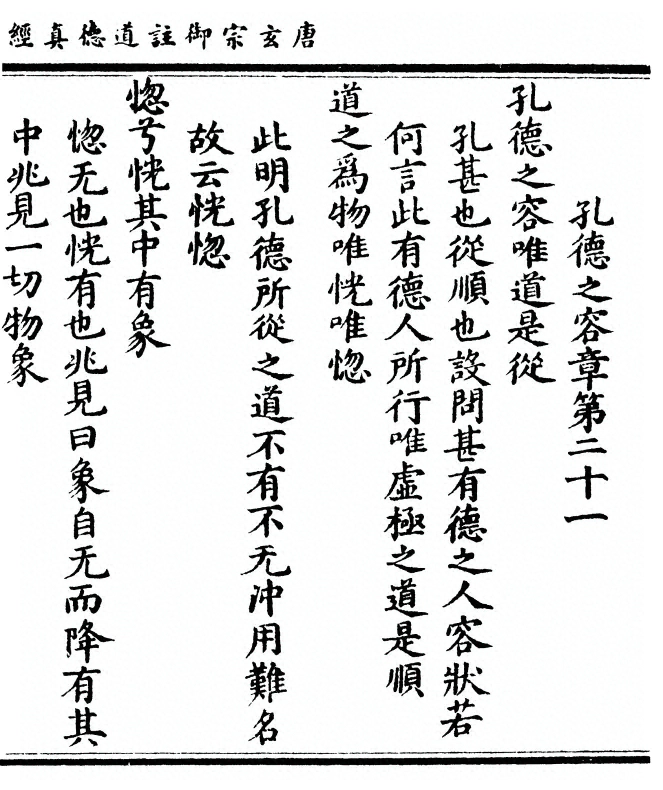 唐玄宗御註道德真經
孔德之容章第二十一
孔德之容唯道是從
孔甚也從順也設問甚有德之人容狀若
何言此有德人所行唯虛極之道是順
道之為物唯恍唯惚
此明孔德所從之道不有不无沖用難名
故云恍惚
惚兮恍其中有象
惚无也恍有也兆見曰象自无而降有其
中兆見一切物象